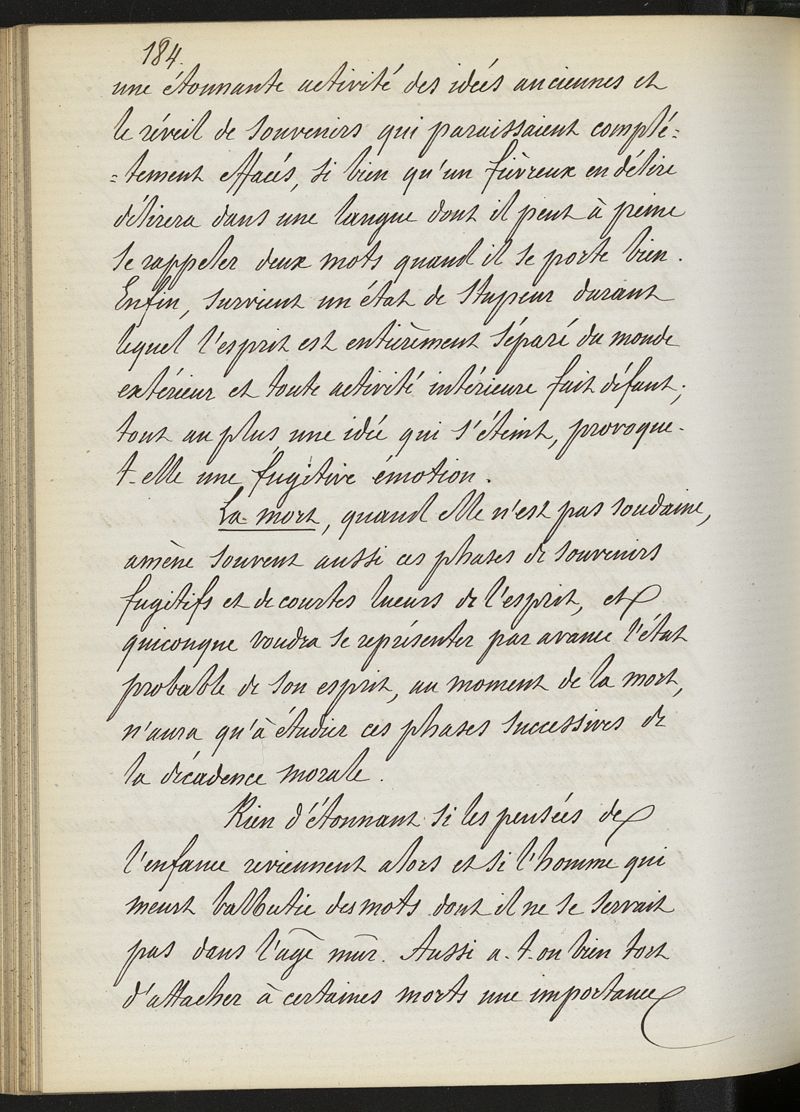 184.
une étonnante activité des idées anciennes et
le réveil de souvenirs qui paraissaient complé=
=tement effacés, si bien qu'un fiévreux en délire
délirera dans une langue dont il peut à peine
se rappeler deux mots quand il se porte bien.
Enfin, survient un état de stupeur durant
lequel l'esprit est entièrement séparé du monde
extérieur et toute activité intérieure fait défaut;
tout au plus une idée qui s'éteint, provoque-
t-elle une fugitive émotion.
La mort, quand elle n'est pas soudaine,
amène souvent aussi ces phases de souvenirs
fugitifs et de courtes lueurs de l'esprit, et
quiconque voudra se représenter par avance l'état
probable de son esprit, au moment de la mort,
n'aura qu'à étudier ces phases successives de
la décadence morale.
Rien d'étonnant si les pensées de
l'enfance reviennent alors et si l'homme qui
meurt balbutie des mots dont il ne se servait
pas dans l'âge mûr. Aussi a-t-on bien tort
d'attacher à certaines morts une importance